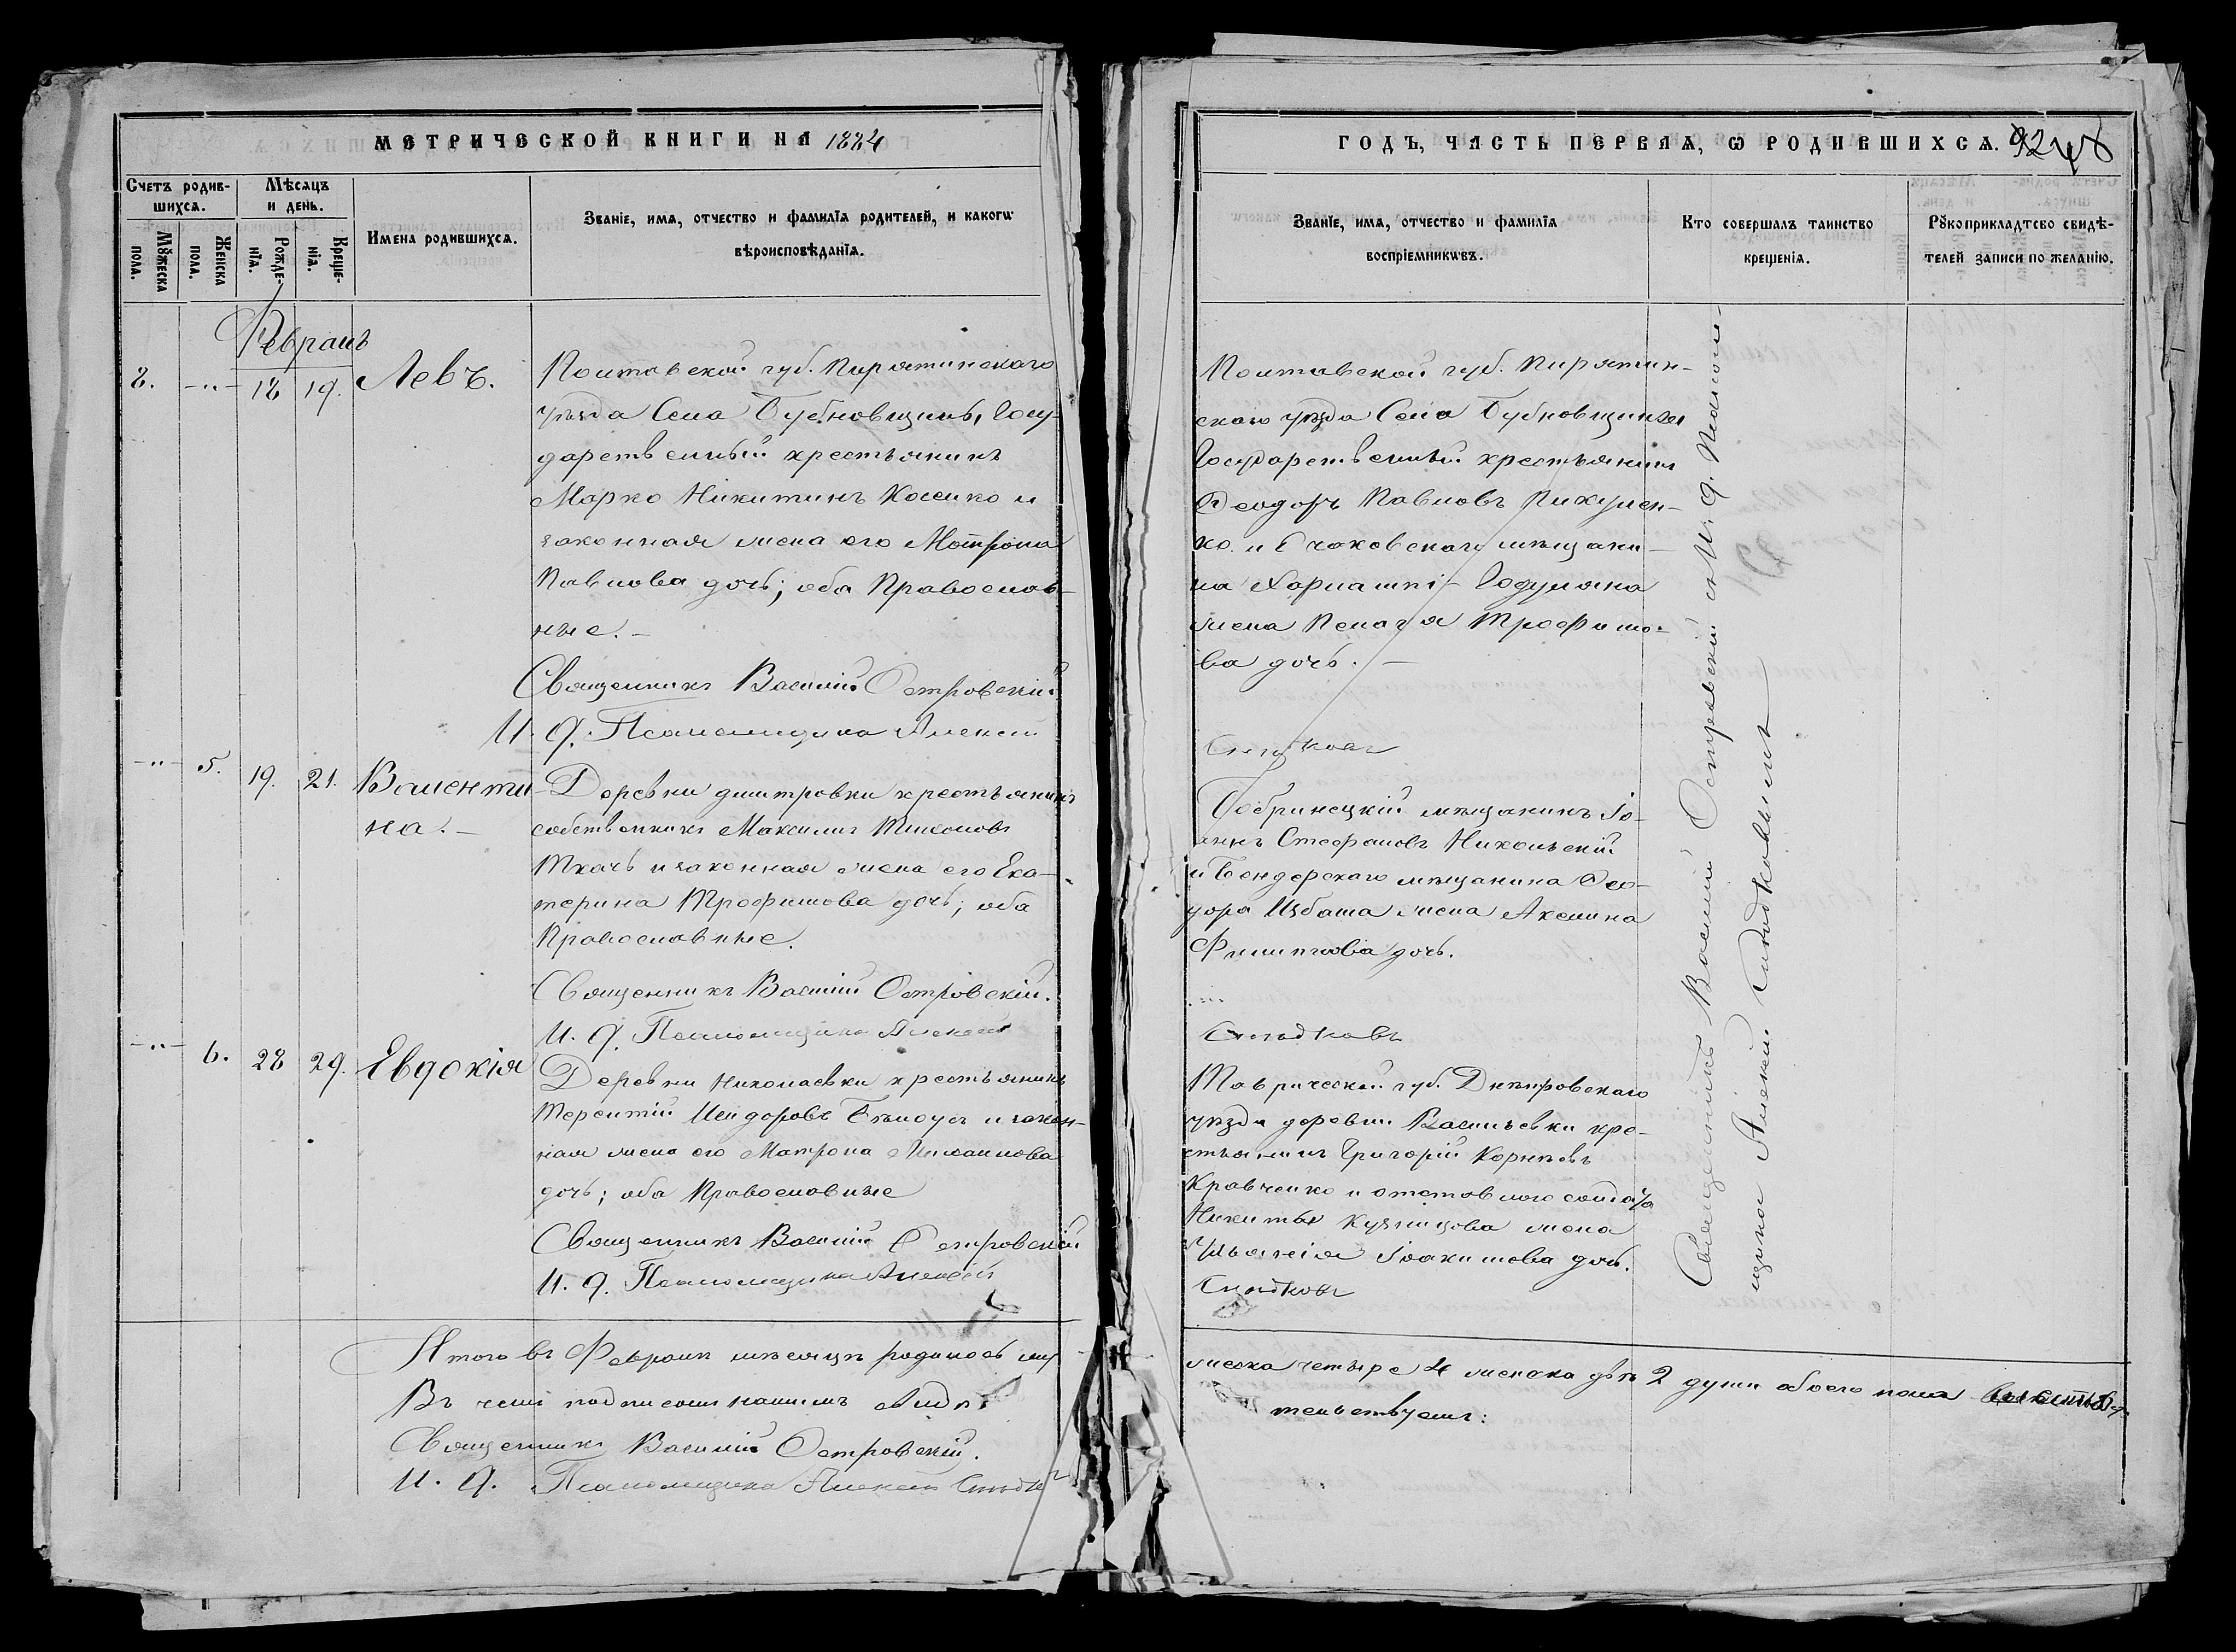 МЕТРИЧЕСКОЙ КНИГИ НА 1884
Счетъ родившихся.
Мѣсяцъ и день.
Мужеска пола.
Женска пола.
Рожденія.
Крещенія.
Имена родившихся.
Званіе, имя, отчество и фамилія родителей, и какогѡ вѣроисповѣданія.
Февраль
8. -"- 18 19. Левъ.
Полтавской губ. Пирятинскаго
уѣзда Села Бубновщины, Госу-
дарственный крестьянинъ
Марко Никитинъ и
законная жена его Мотрона
Павлова дочь; оба Православ-
ные. -
Священникъ Василій Островскій
И. д. Псаломщика Алексѣй
-"- 5. 19. 21. Валенти-
на. -
Деревни Дмитровки крестьянинъ
собственникъ Максимъ Тихоновъ
Ткачъ и законная жена его Ека-
терина Трофимова дочь; оба
Православные.
Священникъ Василій Островскій.
И. д. Псаломщика Алексѣй
-"- 6. 28 29. Евдокія
Деревни Николаевки крестьянинъ
Терентій Исидоровъ Бѣлоусъ и закон-
ная жена его Матрона Михаилова
дочь; оба Православные
Священникъ Василій Островскій
И. д. Псаломщика Алексѣй
Итого въ Февралѣ мѣсяцѣ родилось му
Въ чемъ подписомъ нашимъ
Священникъ Василій Островскій.
И. д. Псаломщика Алексѣй
ГОДЪ, ЧАСТЬ ПЕРВАЯ, Ѡ РОДИВШИХСЯ. 92
Званіе, имя, отчество и фамилія воспріемникѡвъ.
Кто совершалъ таинство крещенія.
Рукоприкладтсво свидѣтелей записи по желанію.
Полтавской губ. Пирятин-
скаго уѣзда Села Бубновщины
Государственный крестьянинъ
Ѳеодоръ Павловъ
ко. и Очаковскаго мѣщани-
на
жена Пелагія Трофимо-
ва дочь. -
Бобринецкій мѣщанинъ Іо-
аннъ Стефановъ Никольскій
и Бендерскаго мѣщанина Ѳео-
дора Избаша жена Акелина
Филиппова дочь.
Таврической губ. Днѣпровскаго
уѣзда деревни Васильевки кре-
стьянинъ Григорій Корнѣевъ
Кравченко и отставного солдата
Никиты Кузнецова жена
Ульянія Іоакимова дочь.
Священникъ Василій Островскій и И. д. Псалом-
щика Алексѣй
жеска четыре 4 женска двѣ 2 души обоего пола
тельствуемъ: